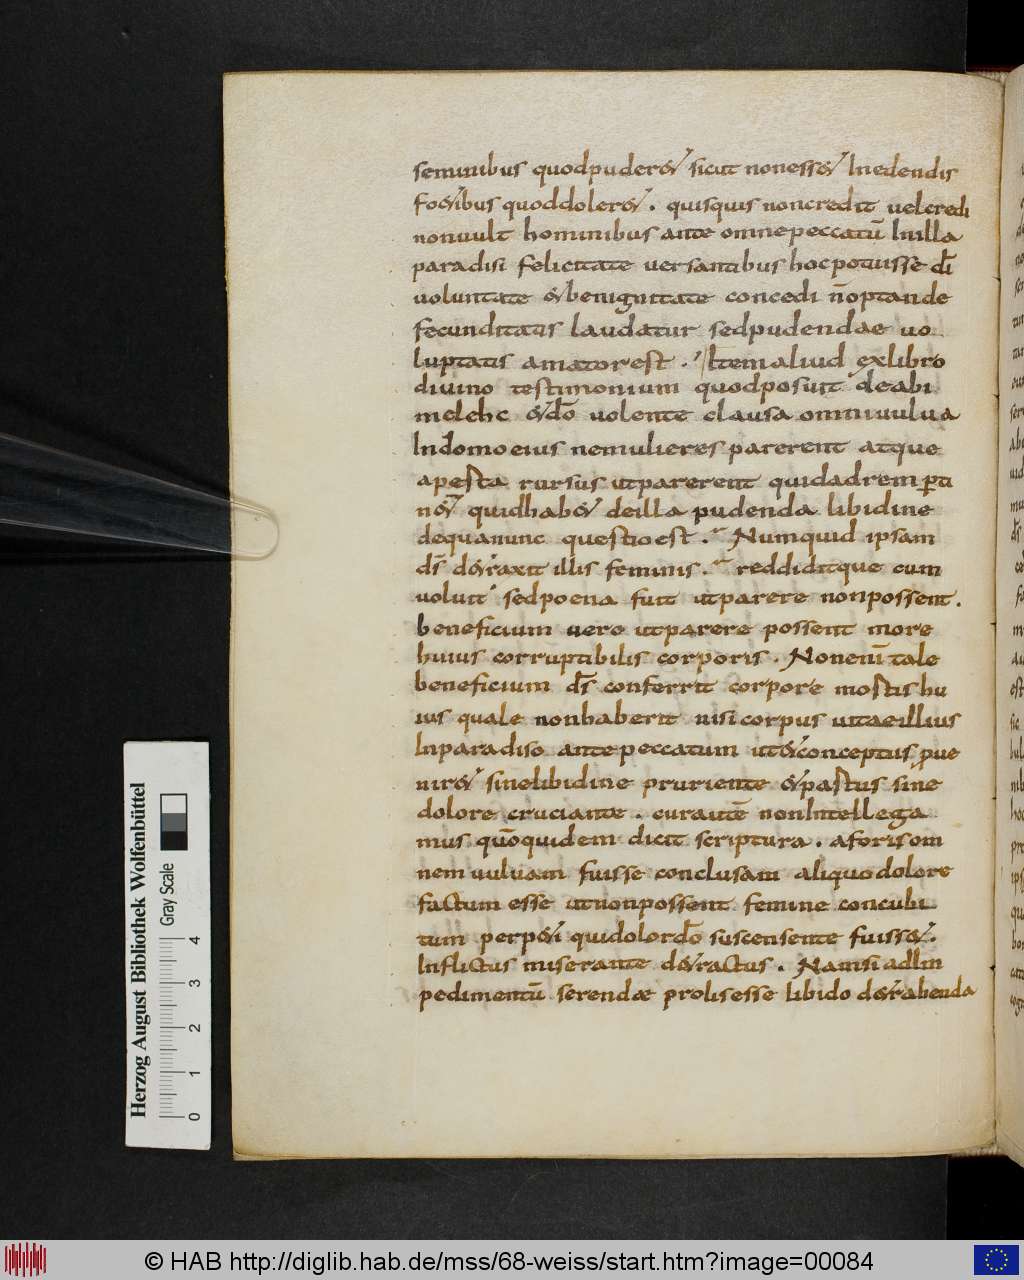 seminibus quodpuder& sicut noness& Inedendis
fo&ibus quoddoler&. quisquis noncredit uelcredi
nonuult hominibus ante omnepeccatū Inilla
paradisi felicitate uersantibus hocpotuisse dī
uoluntate &benignitate concedi ñoptande
fecunditatis laudatur sedpudendae uo
luptatis amatorest. Item aliud exlibro
diuino testimonium quodposuit deabi
melehc &dō uolente clausa omniuulua
Indomoeius nemulieres parerent atque
apesta rursus utparerent quidadrem ꝑti
n& quidhab& deilla pudenda libidine
dequanunc questioest. Numquid ipsam
dš d&raxit illis feminis. reddiditque cum
uoluit sedpoena fuit utparere nonpossent.
beneficium uero utparere possent more
huius corruptibilis corporis. Nonenī tale
beneficium dš conferrit corpore mostis hu
ius quale nonhaberit nisi corpus uitaeillius
Inparadiso antepeccatum ut&conceptus ꝓue
nir& sinelibidine pruriente &pastus sine
dolore cruciante. curautē nonIntellega
mus quōquidem dicit scriptura. aforisom
nem uuluam fuisse conclusam aliquo dolore
factum esse utnonpossent femine concubi
tum perp&i quidolordō suscensente fuiss&.
Inflictus miserante d&ractus. Namsi adIm
pedimentū serendae prolisesse libido d&rahenda
Herzog August Bibliothek Wolfenbüttel
Gray Scale
0 1 2 3 4
© HAB http://diglib.hab.de/mss/68-weiss/start.htm?image=00084